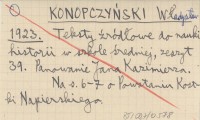 KONOPCZYŃSKI Władysław
1923. Teksty źródłowe do nauki
historii w szkole średniej, zeszyt
39. Panowanie Jana Kazimierza.
Na s. 6-7 o Powstaniu Kost-
ki Napierskiego.